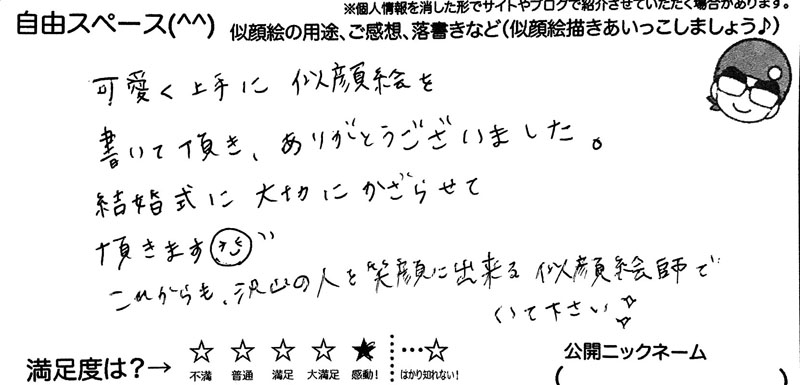 ※個人情報を消した形でサイトやブログで紹介させていただく場合があります。
自由スペース(^^) 似顔絵の用途、ご感想、落書きなど(似顔絵描きあいっこしましょう♪)
可愛く上手に 似顔絵を
書いて頂き、ありがとうございました。
結婚式に 大切に かざらせて
頂きます
これからも、沢山の人を笑顔に出来る 似顔絵師で
いて下さい☆
満足度は?→ ☆ ☆ ☆ ☆ ★ …☆
不満 普通 満足 大満足 感動! はかり知れない!
公開ニックネーム
(